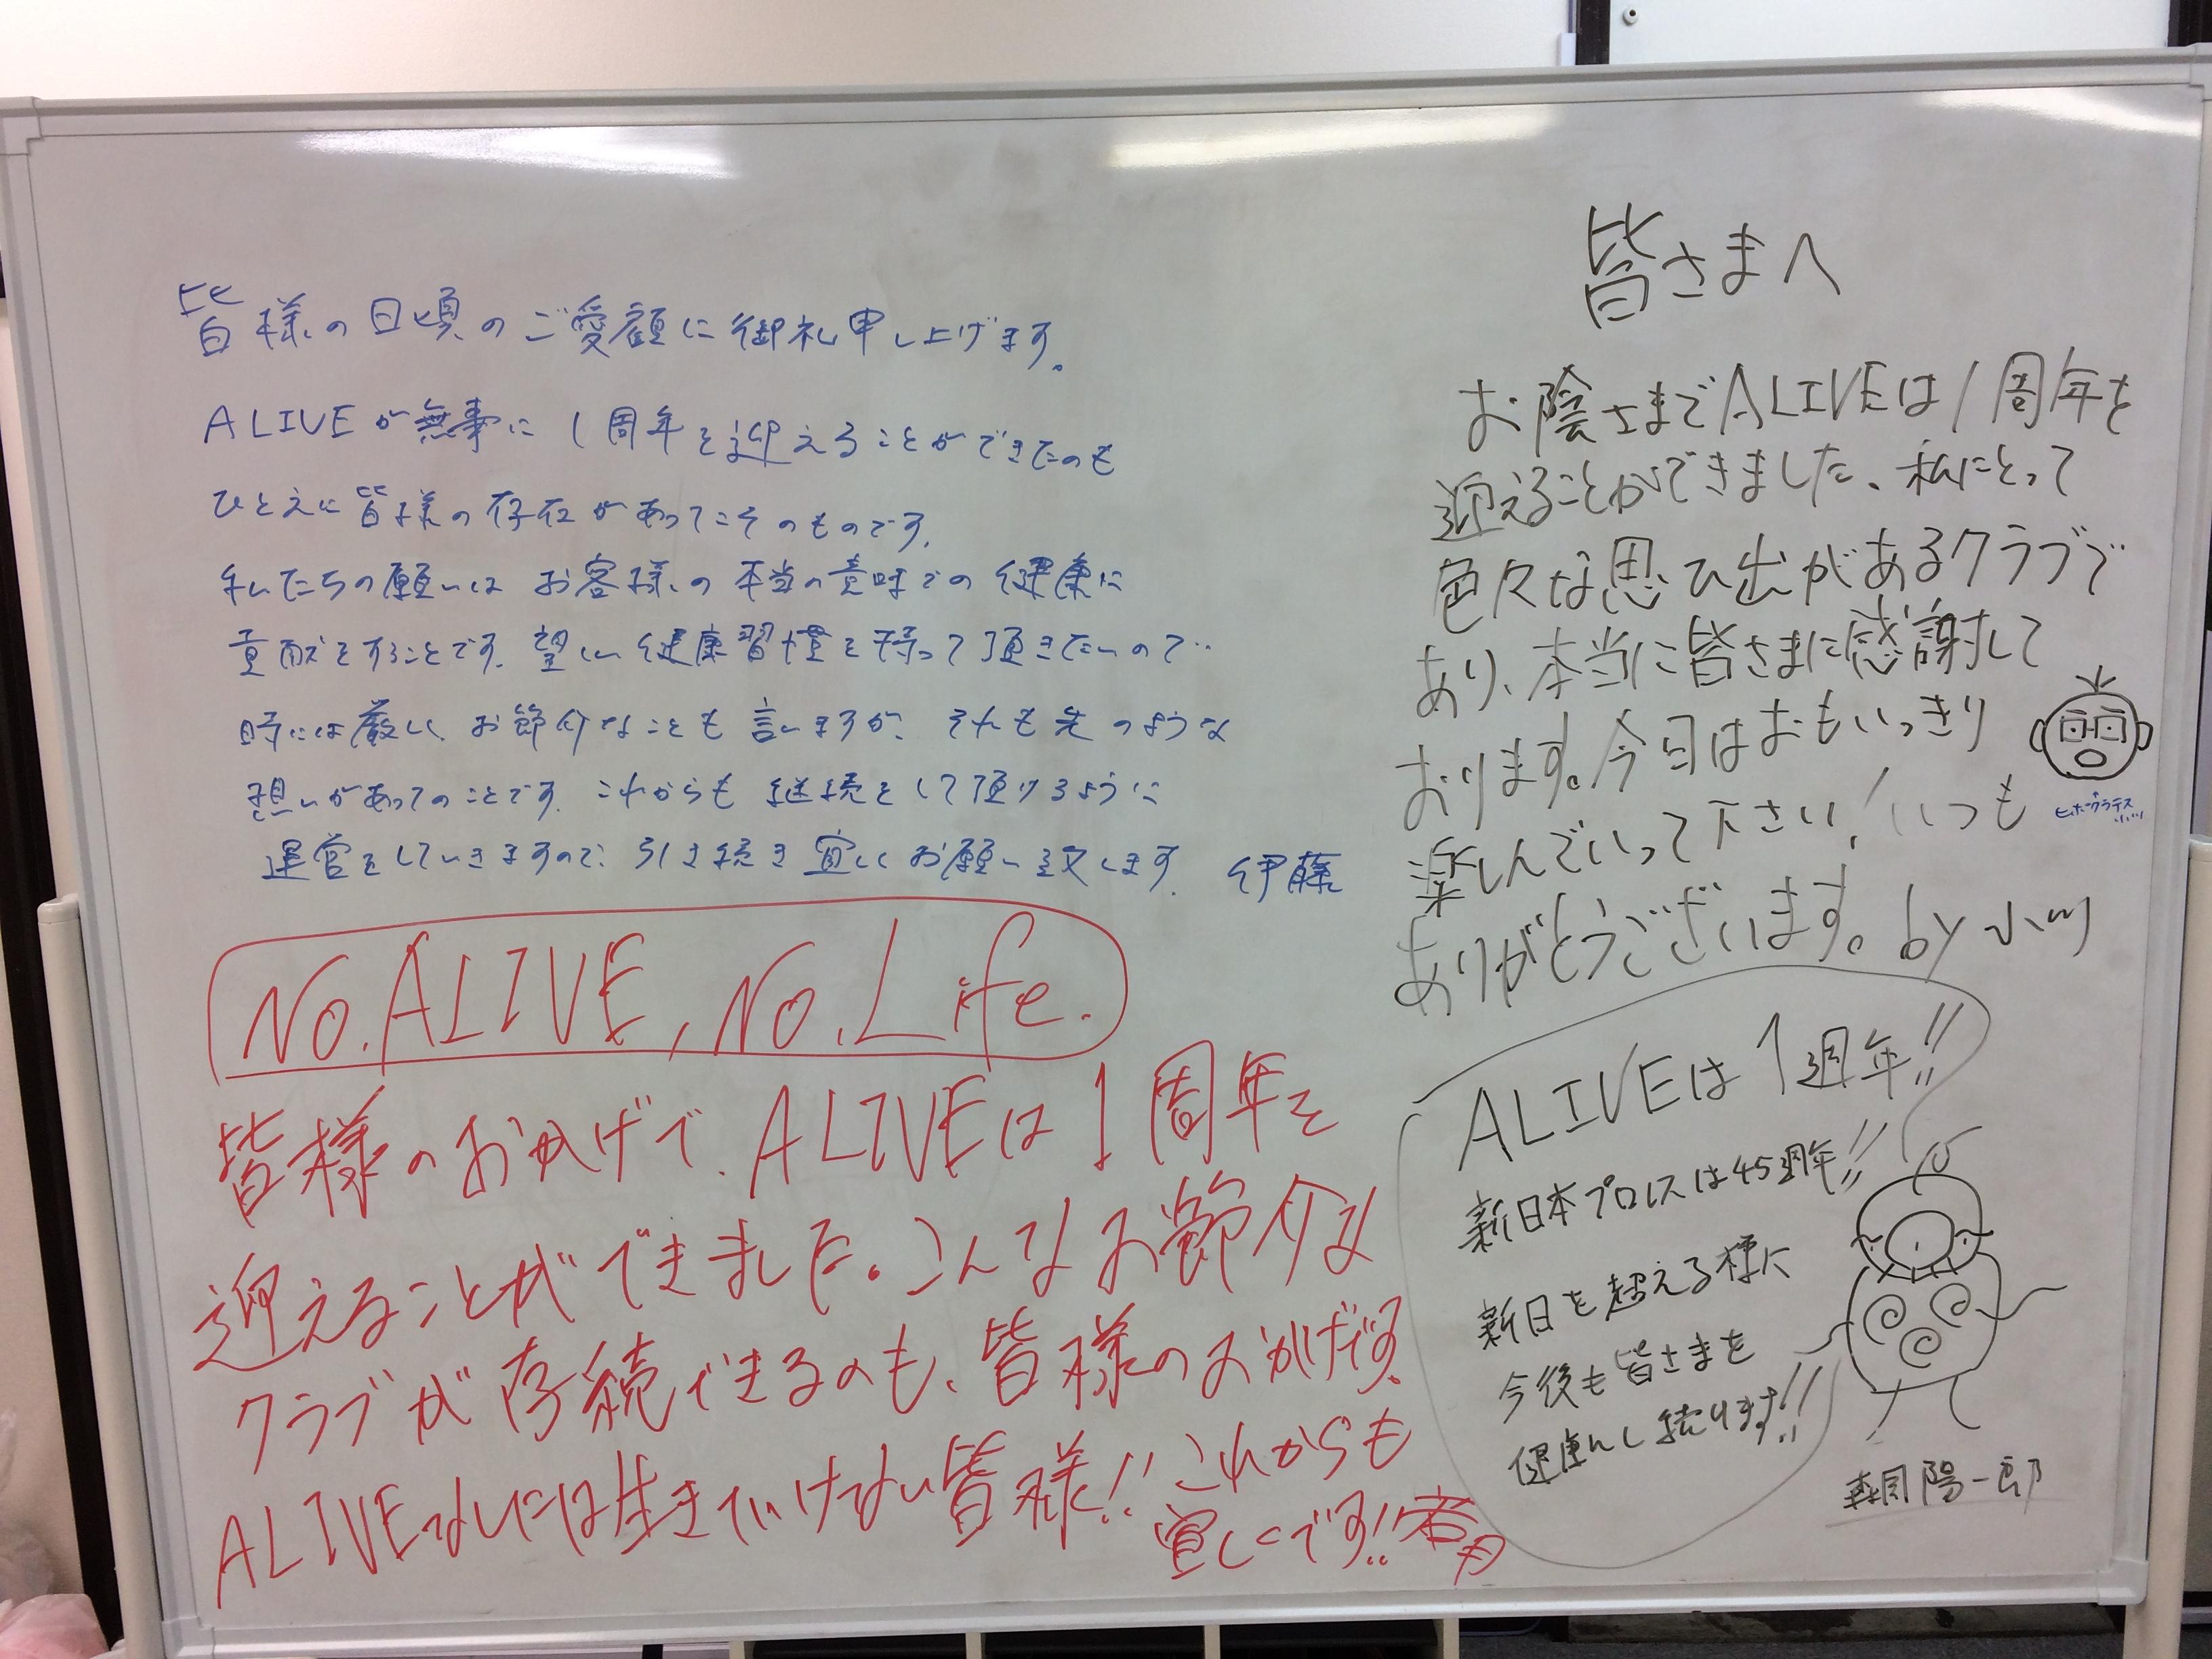 皆様の日頃のご愛顧に御礼申し上げます。
ALIVEが無事に1周年を迎えることができたのも
ひとえに皆様の存在があってこそのものです。
私たちの願いはお客様の本当の意味での健康に
貢献をすることです。望しい健康習慣を持って頂きたいので…
時には厳しく、お節介なことも言いますが、それも先のような
想いがあってのことです。これからも継続をして頂けるように
運営をしていきますので、引き続き宜しくお願い致します。伊藤
No.ALIVE, No.Life.
皆様のおかげで、ALIVEは1周年を
迎えることができました。こんなお節介な
クラブが存続できるのも、皆様のおかげです。
ALIVEなしには生きていけない皆様!!これからも
宜しくです!!
皆さまへ
お陰さまでALIVEは1周年を
迎えることができました、私にとって
色々な思ひ出があるクラブで
あり、本当に皆さまに感謝して
おります。今日はおもいっきり
楽しんでいって下さい!いつも
ありがとうございます。by 小川
ヒポクラテス
小川
ALIVEは1週年!!
新日本プロレスは45週年!!
新日を超える様に
今後も皆さまを
健康にし続けます!!
陽一郎